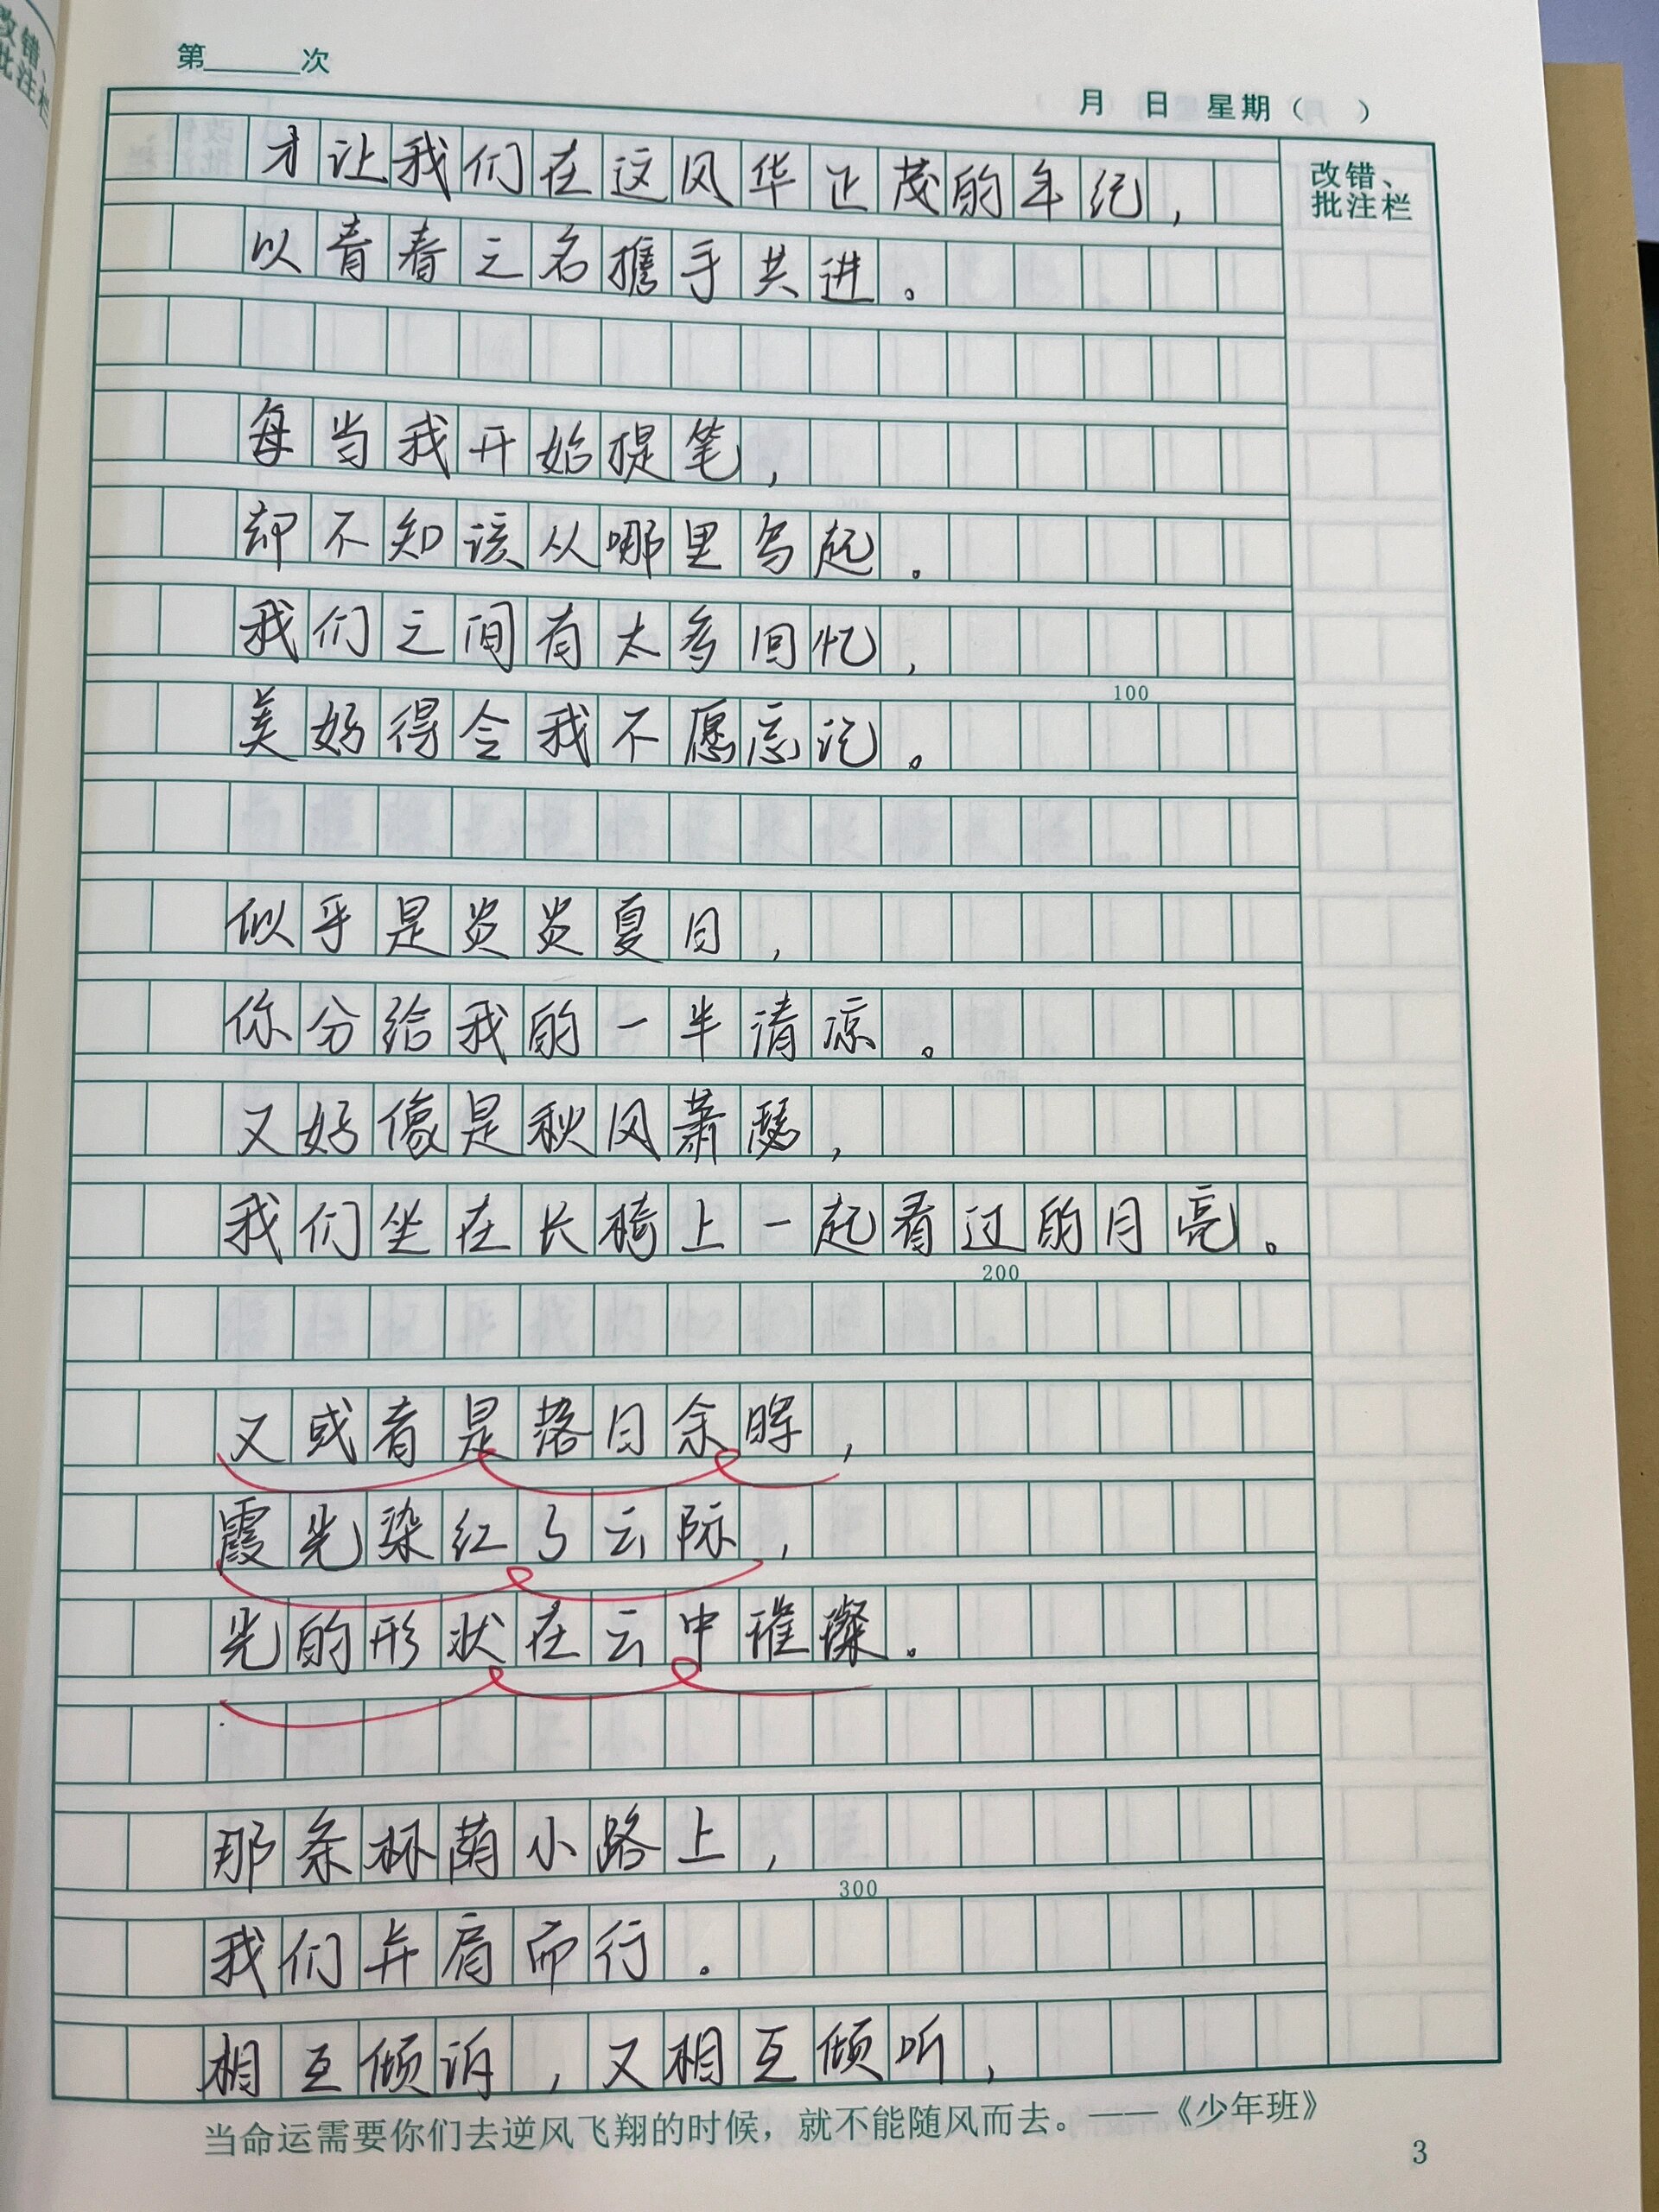 改错、
批注栏
第______次
月 日 星期( )
改错、
批注栏
才让我们在这风华正茂的年纪,
以青春之名携手共进。
每当我开始提笔,
却不知该从哪里写起。
我们之间有太多回忆,
100
美好得令我不愿忘记。
似乎是炎炎夏日,
你分给我的一半清凉。
又好像是秋风萧瑟,
我们坐在长椅上一起看过的月亮。
200
又或者是落日余晖,
霞光染红了云际,
光的形状在云中璀璨。
那条林荫小路上,
300
我们并肩而行。
相互倾诉,又相互倾听,
当命运需要你们去逆风飞翔的时候,就不能随风而去。——《少年班》
3